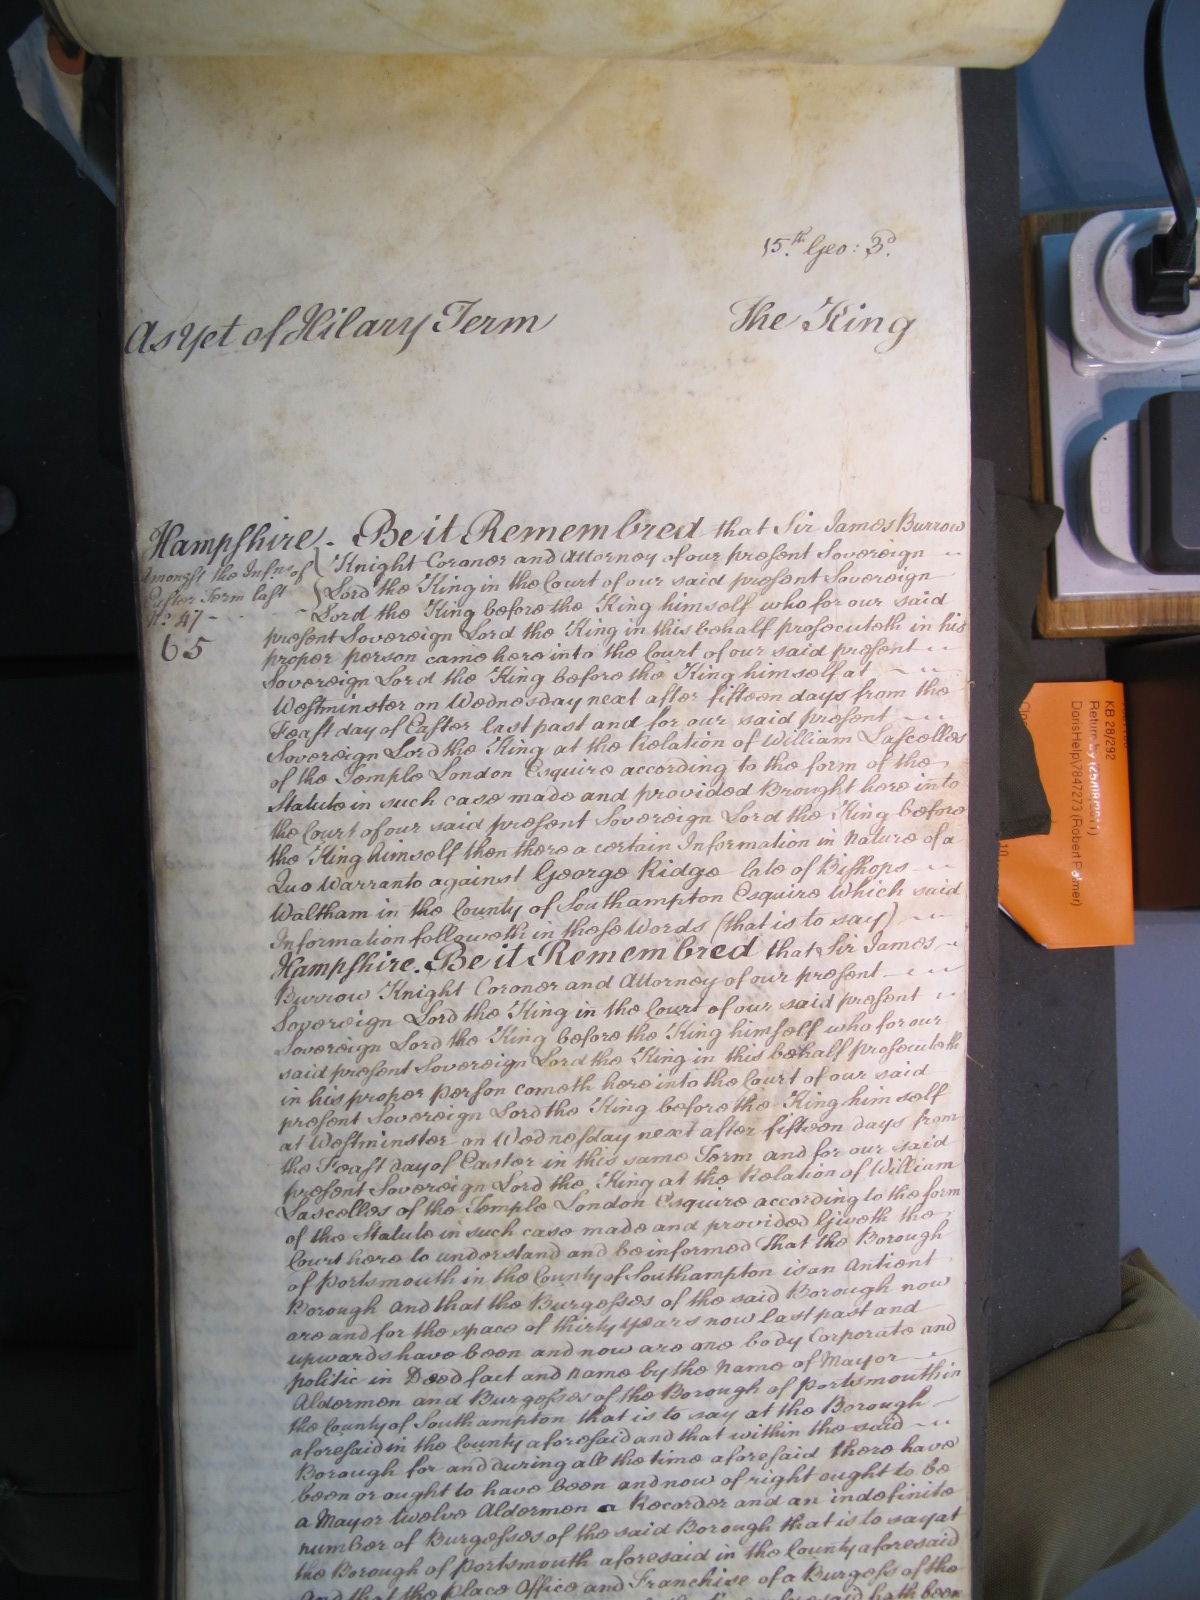 15.th Geo: 3.d
As Yet of Hilary Term The King
Hampshire. Be it Remembred that Sir James Burrow
Amongst the Infns. of Knight Coroner and Attorney of our present Sovereign
Easter Term last Lord the King in the Court of our said present Sovereign
No. 47 Lord the King before the King himself who for our said
65 present Sovereign Lord the King in this behalf prosecuteth in his
proper person came here into the Court of our said present
Sovereign Lord the King before the King himself at
Westminster on Wednesday next after fifteen days from the
Feast day of Easter last past and for our said present
Sovereign Lord the King at the Relation of William Lascelles
of the Temple London Esquire according to the form of the
Statute in such case made and provided Brought here into
the Court of our said present Sovereign Lord the King before
the King himself then there a certain Information in Nature of a
Quo Warranto against George Ridge late of Bishops
Waltham in the County of Southampton Esquire Which said
Information followeth in these Words (that is to say)
Hampshire. Be it Remembred that Sir James
Burrow Knight Coroner and Attorney of our present
Sovereign Lord the King in the Court of our said present
Sovereign Lord the King before the King himself who for our
said present Sovereign Lord the King in this behalf prosecuteth
in his proper person cometh here into the Court of our said
present Sovereign Lord the King before the King him self
at Westminster on Wednesday next after fifteen days from
the Feast day of Easter in this same Term and for our said
present Sovereign Lord the King at the Relation of William
Lascelles of the Temple London Esquire according to the form
of the Statute in such case made and provided Giveth the
Court here to understand and be informed That the Borough
of Portsmouth in the County of Southampton is an Antient
Borough And that the Burgesses of the said Borough now
are and for the space of thirty years now last past and
upwards have been and now are one body Corporate and
politic in Deed fact and Name by the Name of Mayor
Aldermen and Burgesses of the Borough of Portsmouth in
the County of Southampton that is to say at the Borough
aforesaid in the County aforesaid and that within the said
Borough for and during all the time aforesaid there have
been or ought to have been and now of right ought to be
a Mayor twelve Aldermen a Recorder and an indefinite
number of Burgesses of the said Borough that is to say at
the Borough of Portsmouth aforesaid in the County aforesaid
And that the Place Office and Franchise of a Burgess of the
said hath been
KB 28/292
Return by (25/08/2011)
DorisHelp\7847273 (Robert Palmer)